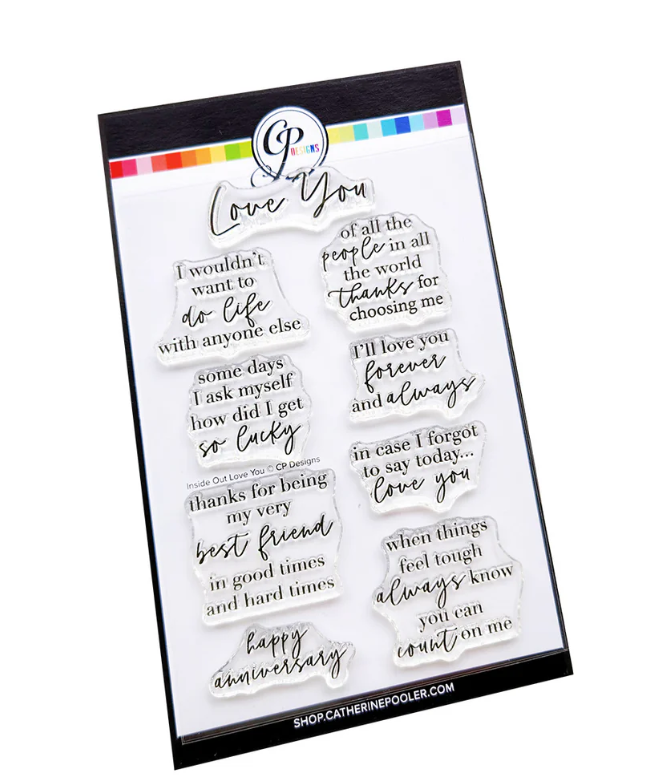 CP
DESIGNS
Love You
I wouldn't
want to
do life
with anyone else
of all the
people in all
the world
thanks for
choosing me
some days
I ask myself
how did I get
so lucky
I'll love you
forever
and always
in case I forgot
to say today...
love you
Inside Out Love You © CP Designs
thanks for being
my very
best friend
in good times
and hard times
when things
feel tough
always know
you can
count on me
happy
anniversary
SHOP.CATHERINEPOOLER.COM